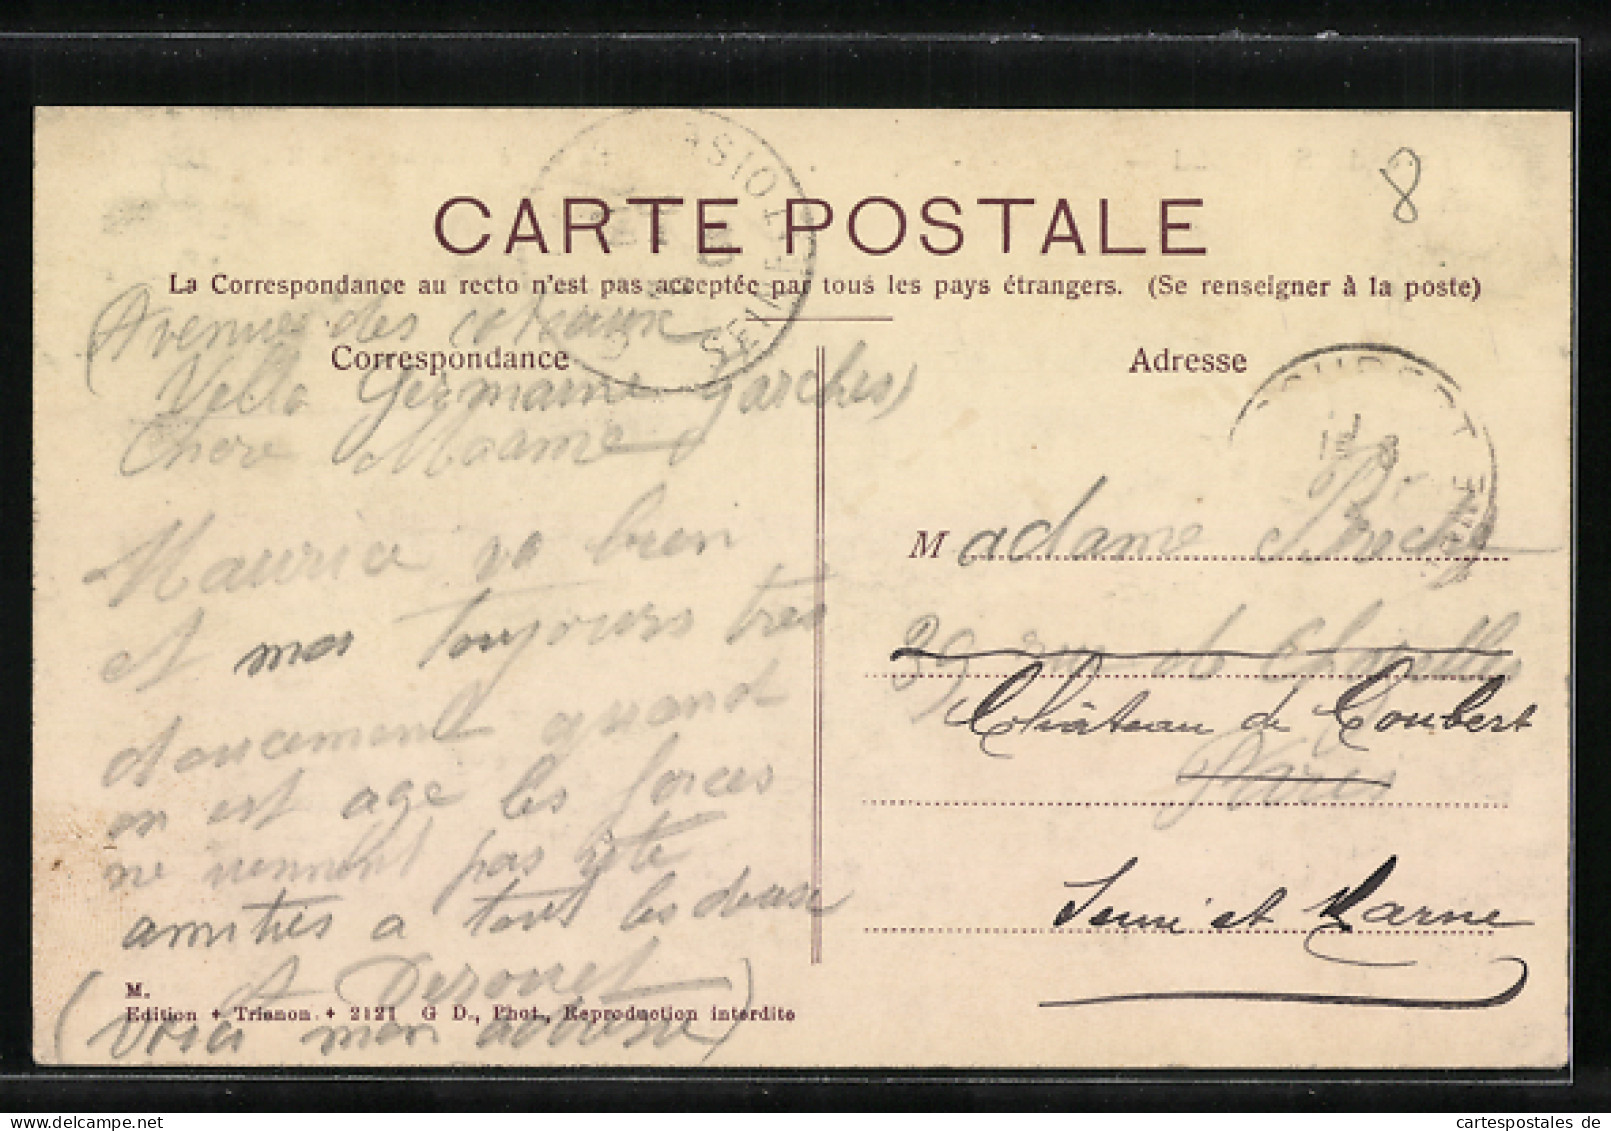 8
CARTE POSTALE
La Correspondance au recto n'est pas acceptée par tous les pays étrangers. (Se renseigner à la poste)
Correspondance
(Avenue des coteaux
Villa Germaine Garches)
Chere Maame
Maurice va bien
et moi toujours tres
doucement quand
on est age les forces
ne viennent pas vite
amities a tous les deux
A Derouet
(Voici mon adresse)
M.
Edition + Trianon + 2121 G D., Phot., Reproduction interdite
SEINE
Adresse
Madame
39 rue de Chazelles
Château de Coubert
Paris
Seine et Marne
cartespostales de